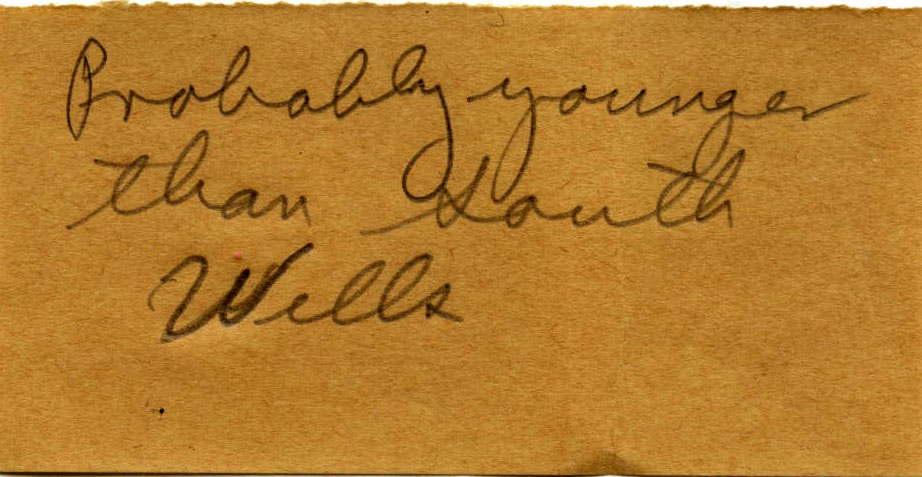 Probably younger
than South
Wells